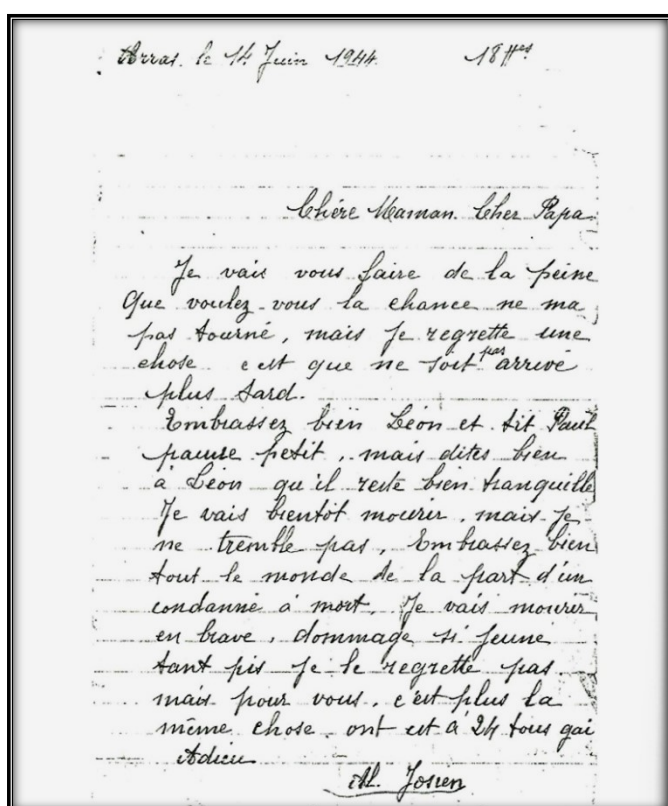 Arras. le 14 Juin 1944. 18 Hes
Chére Maman. Cher Papa.
Je vais vous faire de la peine
Que voulez-vous la chance ne ma
pas tourné, mais je regrette une
chose c est que ne soit pas arrivé
plus tard.
Embrassez bien Léon et tit Paul
pauvre petit, mais dites bien
à Léon qu'il reste bien tranquille
Je vais bientôt mourir, mais je
ne tremble pas, Embrassez bien
tout le monde de la part d'un
condanné à mort. Je vais mourir
en brave, dommage si jeune
tant pis je le regrette pas
mais pour vous, c'est plus la
même chose. ont est à 24 tous gai
Adieu
Al. Josien